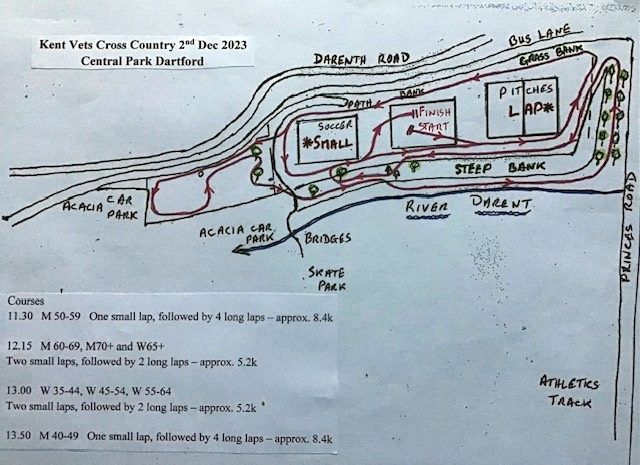 Kent Vets Cross Country 2nd Dec 2023
Central Park Dartford
DARENTH ROAD
BUS LANE
GRASS BANK
BANK
PATH
PITCHES
LAP*
FINISH
START
SOCCER
*SMALL
STEEP BANK
ACACIA CAR
PARK
RIVER DARENT
ACACIA CAR
PARK
BRIDGES
SKATE
PARK
PRINCES ROAD
ATHLETICS
TRACK
Courses
11.30 M 50-59 One small lap, followed by 4 long laps – approx. 8.4k
12.15 M 60-69, M70+ and W65+
Two small laps, followed by 2 long laps – approx. 5.2k
13.00 W 35-44, W 45-54, W 55-64
Two small laps, followed by 2 long laps – approx. 5.2k
13.50 M 40-49 One small lap, followed by 4 long laps – approx. 8.4k